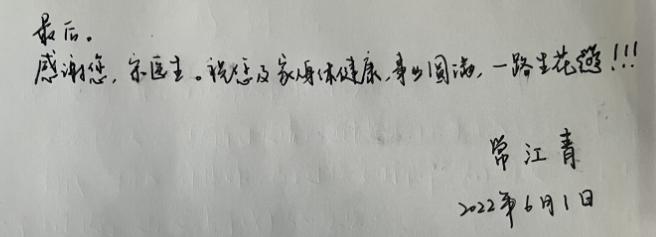 最后。
感谢您，宗医生。祝您及家人身体健康，事业圆满，一路生花!!!
常江青
2022年6月1日